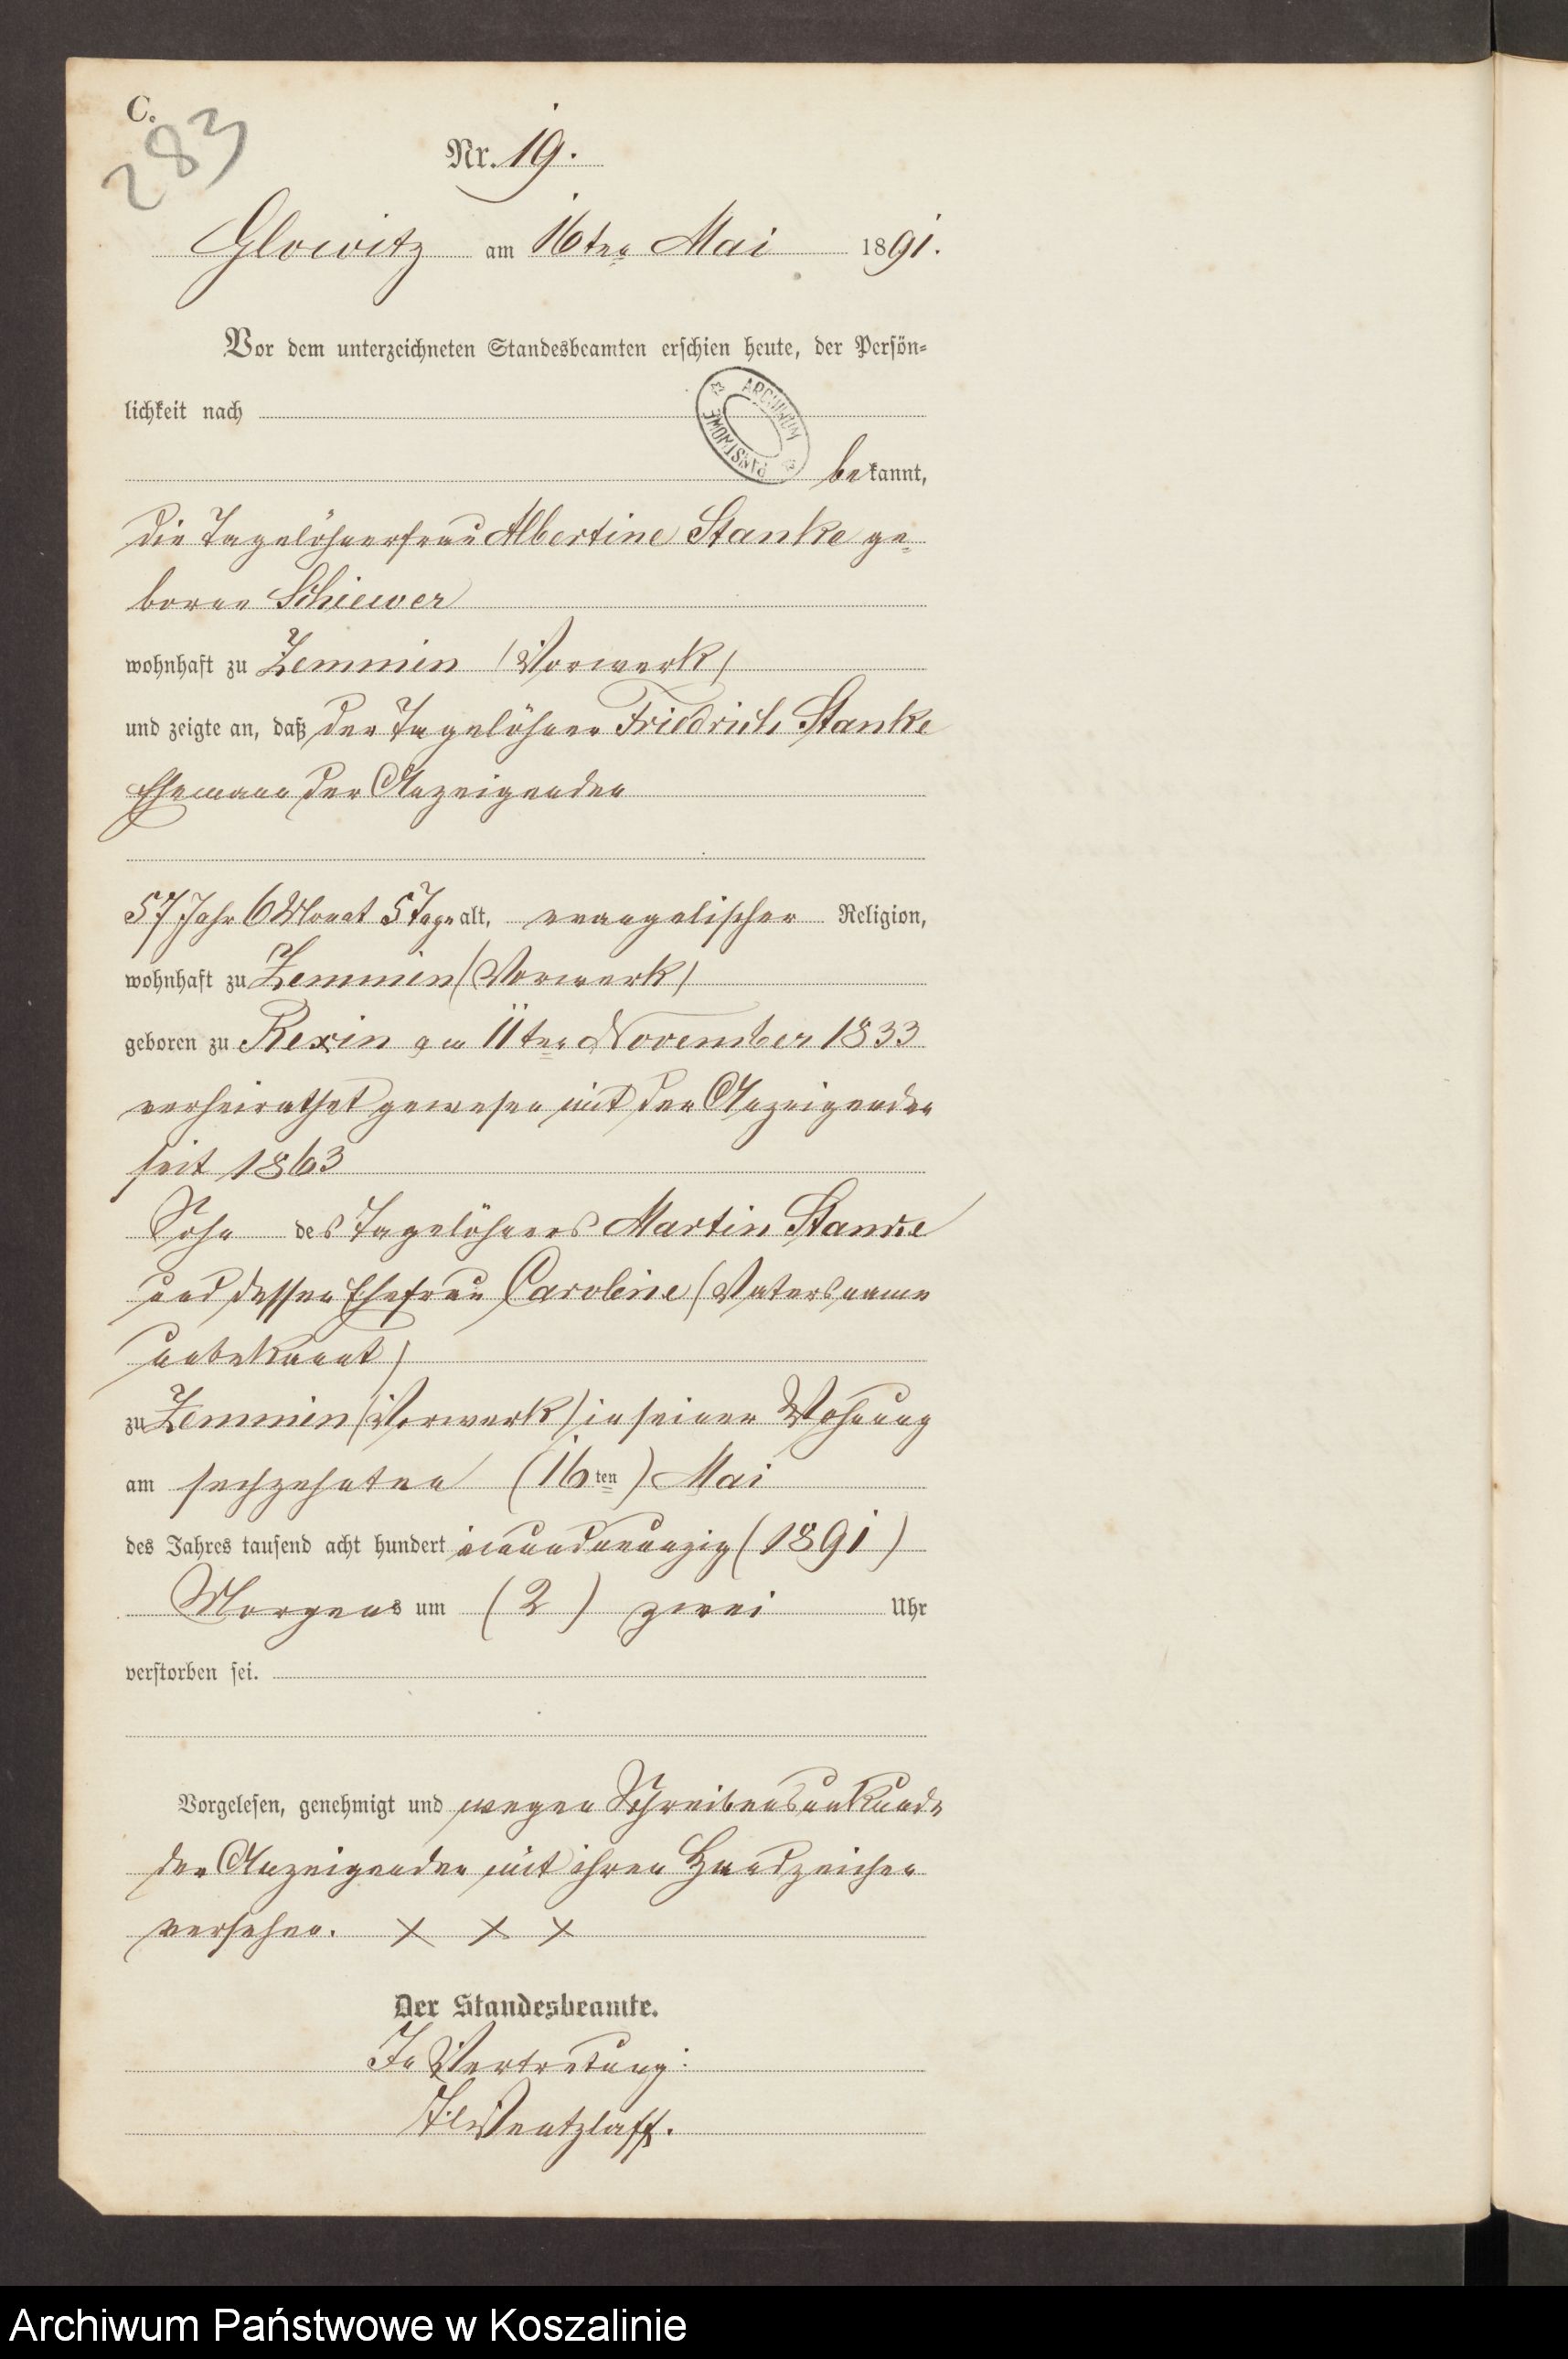 C.
283
Nr. 19.
Glowitz am 16ten Mai 1891.
Vor dem unterzeichneten Standesbeamten erschien heute, der Persön-
lichkeit nach
ARCHIWUM PAŃSTWOWE
bekannt,
die Tagelöhnerfrau Albertine Stanke ge-
borne Schiewer
wohnhaft zu Zemmin (Vorwerk)
und zeigte an, daß der Tagelöhner Friedrich Stanke
Ehemann der Anzeigenden
57 Jahr 6 Monat 5 Tage alt, evangelischer Religion,
wohnhaft zu Zemmin (Vorwerk)
geboren zu Rexin am 11ten November 1833
verheirathet gewesen mit der Anzeigenden
seit 1863
Sohn des Tagelöhners Martin Stanke
und dessen Ehefrau Caroline (Vatersname
unbekannt)
zu Zemmin (Vorwerk) in seiner Wohnung
am sechzehnten (16ten) Mai
des Jahres tausend acht hundert einundneunzig (1891)
Morgens um (2) zwei Uhr
verstorben sei.
Vorgelesen, genehmigt und wegen Schreibensunkunde
der Anzeigenden mit ihren Handzeichen
versehen. X X X
Der Standesbeamte.
In Vertretung:
Wentzlaff.
Archiwum Państwowe w Koszalinie